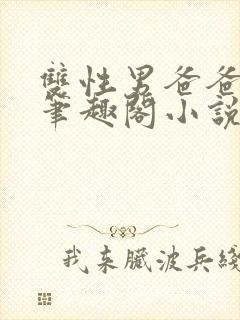 雙性男爸爸
筆趣閣小說
我來臓波兵綫